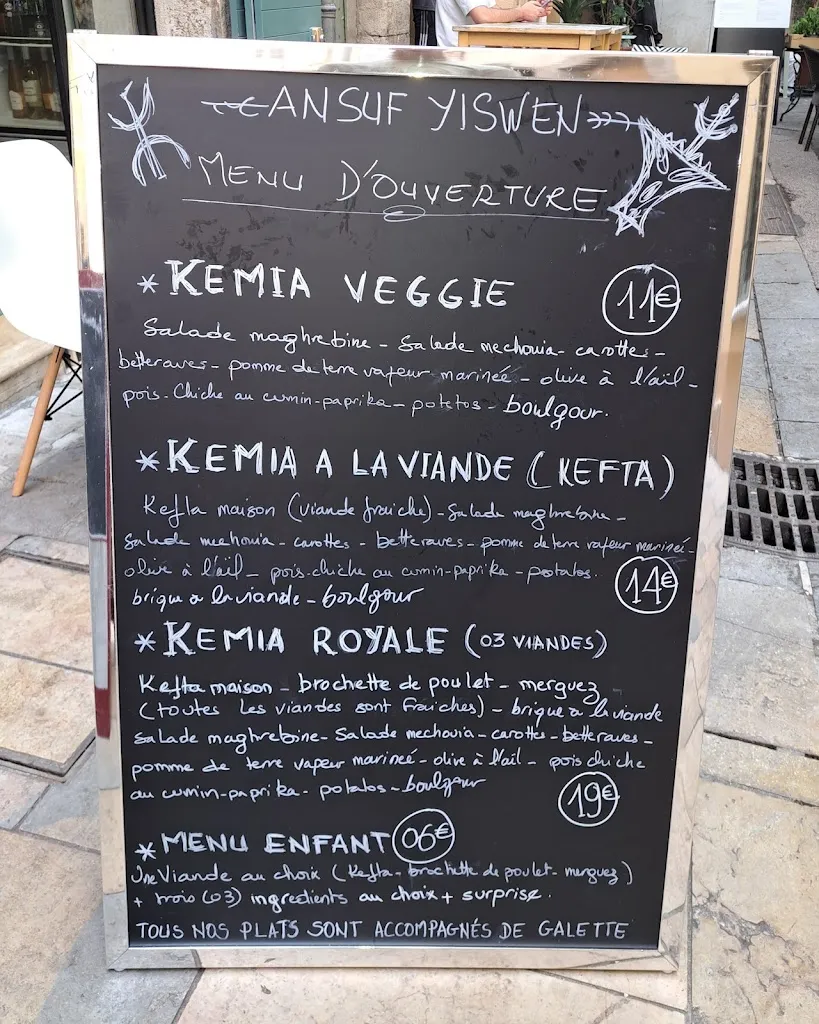 ANSUF YISWEN
MENU D'OUVERTURE
* KEMIA VEGGIE 11€
Salade maghrebine - Salade mechouia - carottes -
betteraves - pomme de terre vapeur marinée - olive à l'aïl -
pois-chiche au cumin-paprika - potatos - boulgour.
* KEMIA A LA VIANDE (KEFTA)
Kefta maison (viande fraiche) - Salade maghrebine -
Salade mechouia - carottes - betteraves - pomme de terre vapeur marineé -
olive à l'aïl - pois-chiche au cumin-paprika - potatos.
14€
brique a la viande - boulgour
* KEMIA ROYALE (03 VIANDES)
Kefta maison - brochette de poulet - merguez
(toutes les viandes sont fraiches) - brique a la viande
Salade maghrebine - Salade mechouia - carottes - betteraves -
pomme de terre vapeur marineé - olive à l'ail - pois chiche
au cumin-paprika - potatos - boulgour
19€
* MENU ENFANT 06€
Une Viande au choix (Kefta - brochette de poulet - merguez)
+ trois (03) ingredients au choix + surprise.
TOUS NOS PLATS SONT ACCOMPAGNÉS DE GALETTE